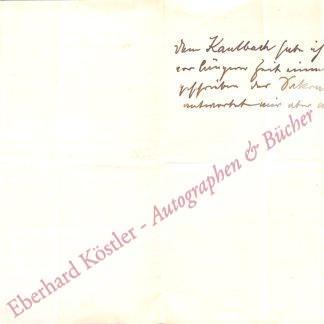 dem Kaulbach habe ich
vor längerer Zeit einmal
geschrieben der
antwortet mir aber
Eberhard Köstler - Autographen & Bücher